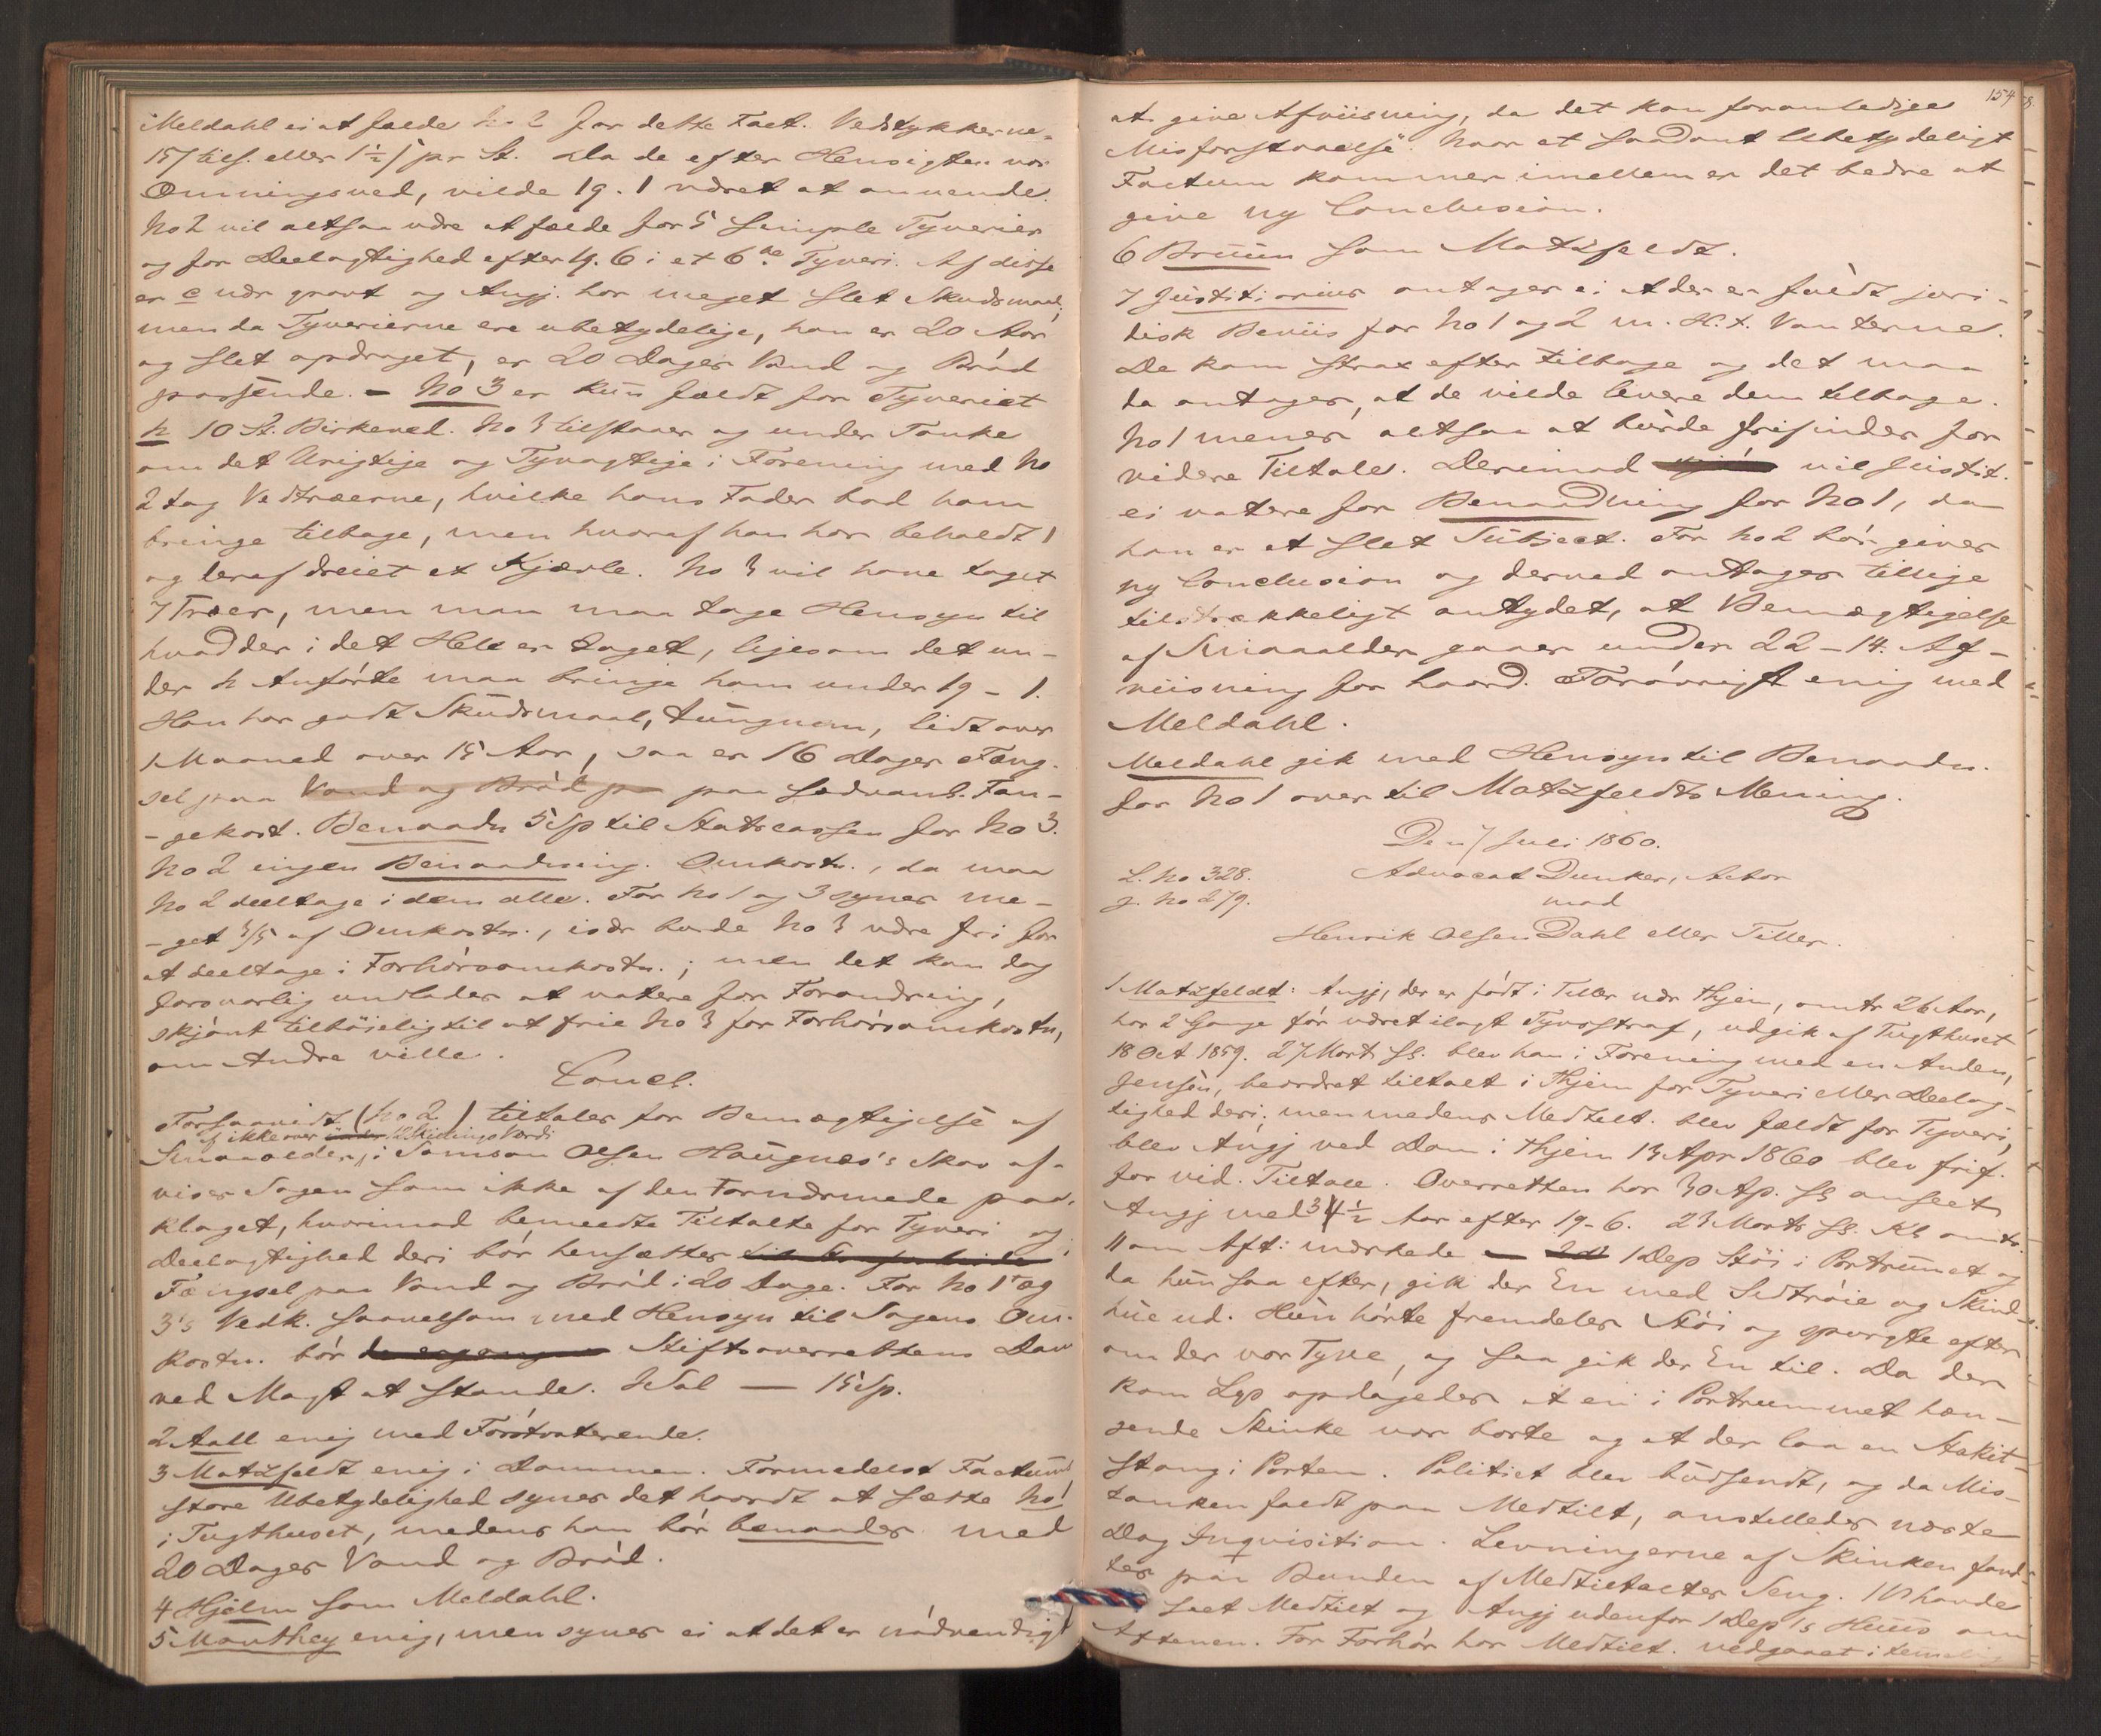 Meldahl ei at fælde No 2 for dette Fact. Vedstykkerne
15/ tils. eller 1½/ pr St. Da de efter Hensigten var
Ovnningsved, vilde 19. 1 været at anvende.
No 2 vil altsaa være at fælde for 5 Simple Tyverier
og for Deelagtighed efter 19. 6 i et 6te Tyveri. Af disse
er e nær grovt og Angj. har meget slet Skudsmaal;
men da Tyverierne ere ubetydelige, han er 20 Aar
og slet opdraget, er 20 Dages Vand og Brød
passende. – No 3 er kun fældt for Tyveriet
h 10 St. Birkeved. No 3 tilstaaer og under Tanke
om det Urigtige og Tyvagtige i Forening med No
2 tog Vedtræerne, hvilke hans Fader bad ham
bringe tilbage, men hvoraf han har beholdt 1
og deraf dreiet et Kjævle. No 3 vil have taget
7 Træer, men man maa tage Hensyn til
hvad der i det Hele er taget, ligesom det un-
der h Anførte maa bringe ham under 19 – 1.
Han har godt Skudsmaal, Aungnem, lidt over
1 Maaned over 15 Aar, saa er 16 Dages Fæng-
sel paa Vand og Brød p paa sædvanl. Fan-
-gekost. Benaadn 5 Sp til Statscassen for No 3.
No 2 ingen Benaadning. Omkostn., da maa
No 2 deeltage i dem alle. For No 1 og 3 synes me-
-get 3/5 af Omkostn., især burde No 3 være fri for
at deeltage i Forhørsomkostn.; men det kan dog
forsvarlig undlades at votere for Forandring,
skjønt tilbøielig til at frie No 3 for Forhørsomkostn,
om Andre ville.
Concl.
Forsaavidt (No 2) tiltales for Bemægtigelse af
af ikke over under 12 Skillings Værdi
Smaaolder, i Samson Olsen Haugnæs's Skov af-
vises Sagen som ikke af den Fornærmede paa-
klaget, hvorimod bemeldte Tiltalte for Tyveri og
Deelagtighed deri bør hensættes i
Fængsel paa Vand og Brød i 20 Dage. For No 1 og
3's Vedk. saavelsom med Hensyn til Sagens Om-
kostn. bør Stiftsoverrettens Dom
ved Magt at stande. Sal — 15 Sp.
2 Aall enig med Førstvoterende.
3 Motzfeldt enig i Dommen. Formedelst Factums
store Ubetydelighed synes det haardt at sætte No 1
i Tugthuset, medens han bør benaades med
20 Dages Vand og Brød.
4 Hjelm som Meldahl.
5 Manthey enig, men synes ei at det er nødvendigt
154
at give Afviisning, da det kan foranledige
Misforstaaelse. Naar et saadant Ubetydeligt
Factum kommer imellem er det bedre at
give ny Conclusion.
6 Bruun som Motzfeldt.
7 Justitiarius antager ei at der er fuldt juri-
disk Beviis for No 1 og 2 m. H. t. Vanterne.
De kom strax efter tilbage og det maa
da antages, at de vilde levere dem tilbage.
No 1 menes altsaa at burde frifindes for
videre Tiltale. Derimod vil Justit.
ei votere for Benaadning for No 1, da
han er et slet Subject. For No 2 bør gives
ny Conclusion og derved antages tillige
tilstrækkeligt antydet, at Bemægtigelse
af Smaaolder gaaer under 22 – 14. Af-
viisning for haard. Forøvrigt enig med
Meldahl.
Meldahl gik med Hensyn til Benaadn.
for No 1 over til Motzfeldts Mening.
Den 7 Juli 1860.
L. No 328. Advocat Dunker, Actor
g. No 279. mod
Henrik Olsen Dahl eller Tiller.
1 Motzfeldt: Angj, der er født i Tiller nær Thjem, omtr 26 Aar,
har 2 Gange før været ilagt Tyvsstraf, udgik af Tugthuset
18 Oct 1859. 27 Marts ss. blev han i Forening med en Anden,
Jensen, beordret tiltalt i Thjem for Tyveri eller Deelag-
tighed deri; men medens Medtilt. blev fældt for Tyveri,
blev Angj ved Dom i Thjem 13 Apr 1860 blev frif.
for vid. Tiltale. Overretten har 30 Ap. ss anseet
Angj med 3 4½ Aar efter 19-6. 23 Marts ss. Kl omtr.
11 om Aft: mærkede 1 Dep Støi i Portrumet og
da hun saa efter, gik der En med Sidtrøie og Skind-
hue ud. Hun hørte fremdeles Støi og spurgte efter
om der var Tyve, og saa gik der En til. Da der
kom Lys opdagedes at en i Portrummet hæn-
gende Skinke var borte og at der laa en Stakit-
stang i Porten. Politiet blev budsendt, og da Mis-
tanken faldt paa Medtilt, anstilledes næste
Dag Inquisition. Levningerne af Skinken fand-
tes paa Bunden af Medtiltaltes Seng. 1 V havde
seet Medtilt og Angj udenfor 1 Dep's Huus om
Aftenen. For Forhør har Medtilt. vedgaaet i temelig